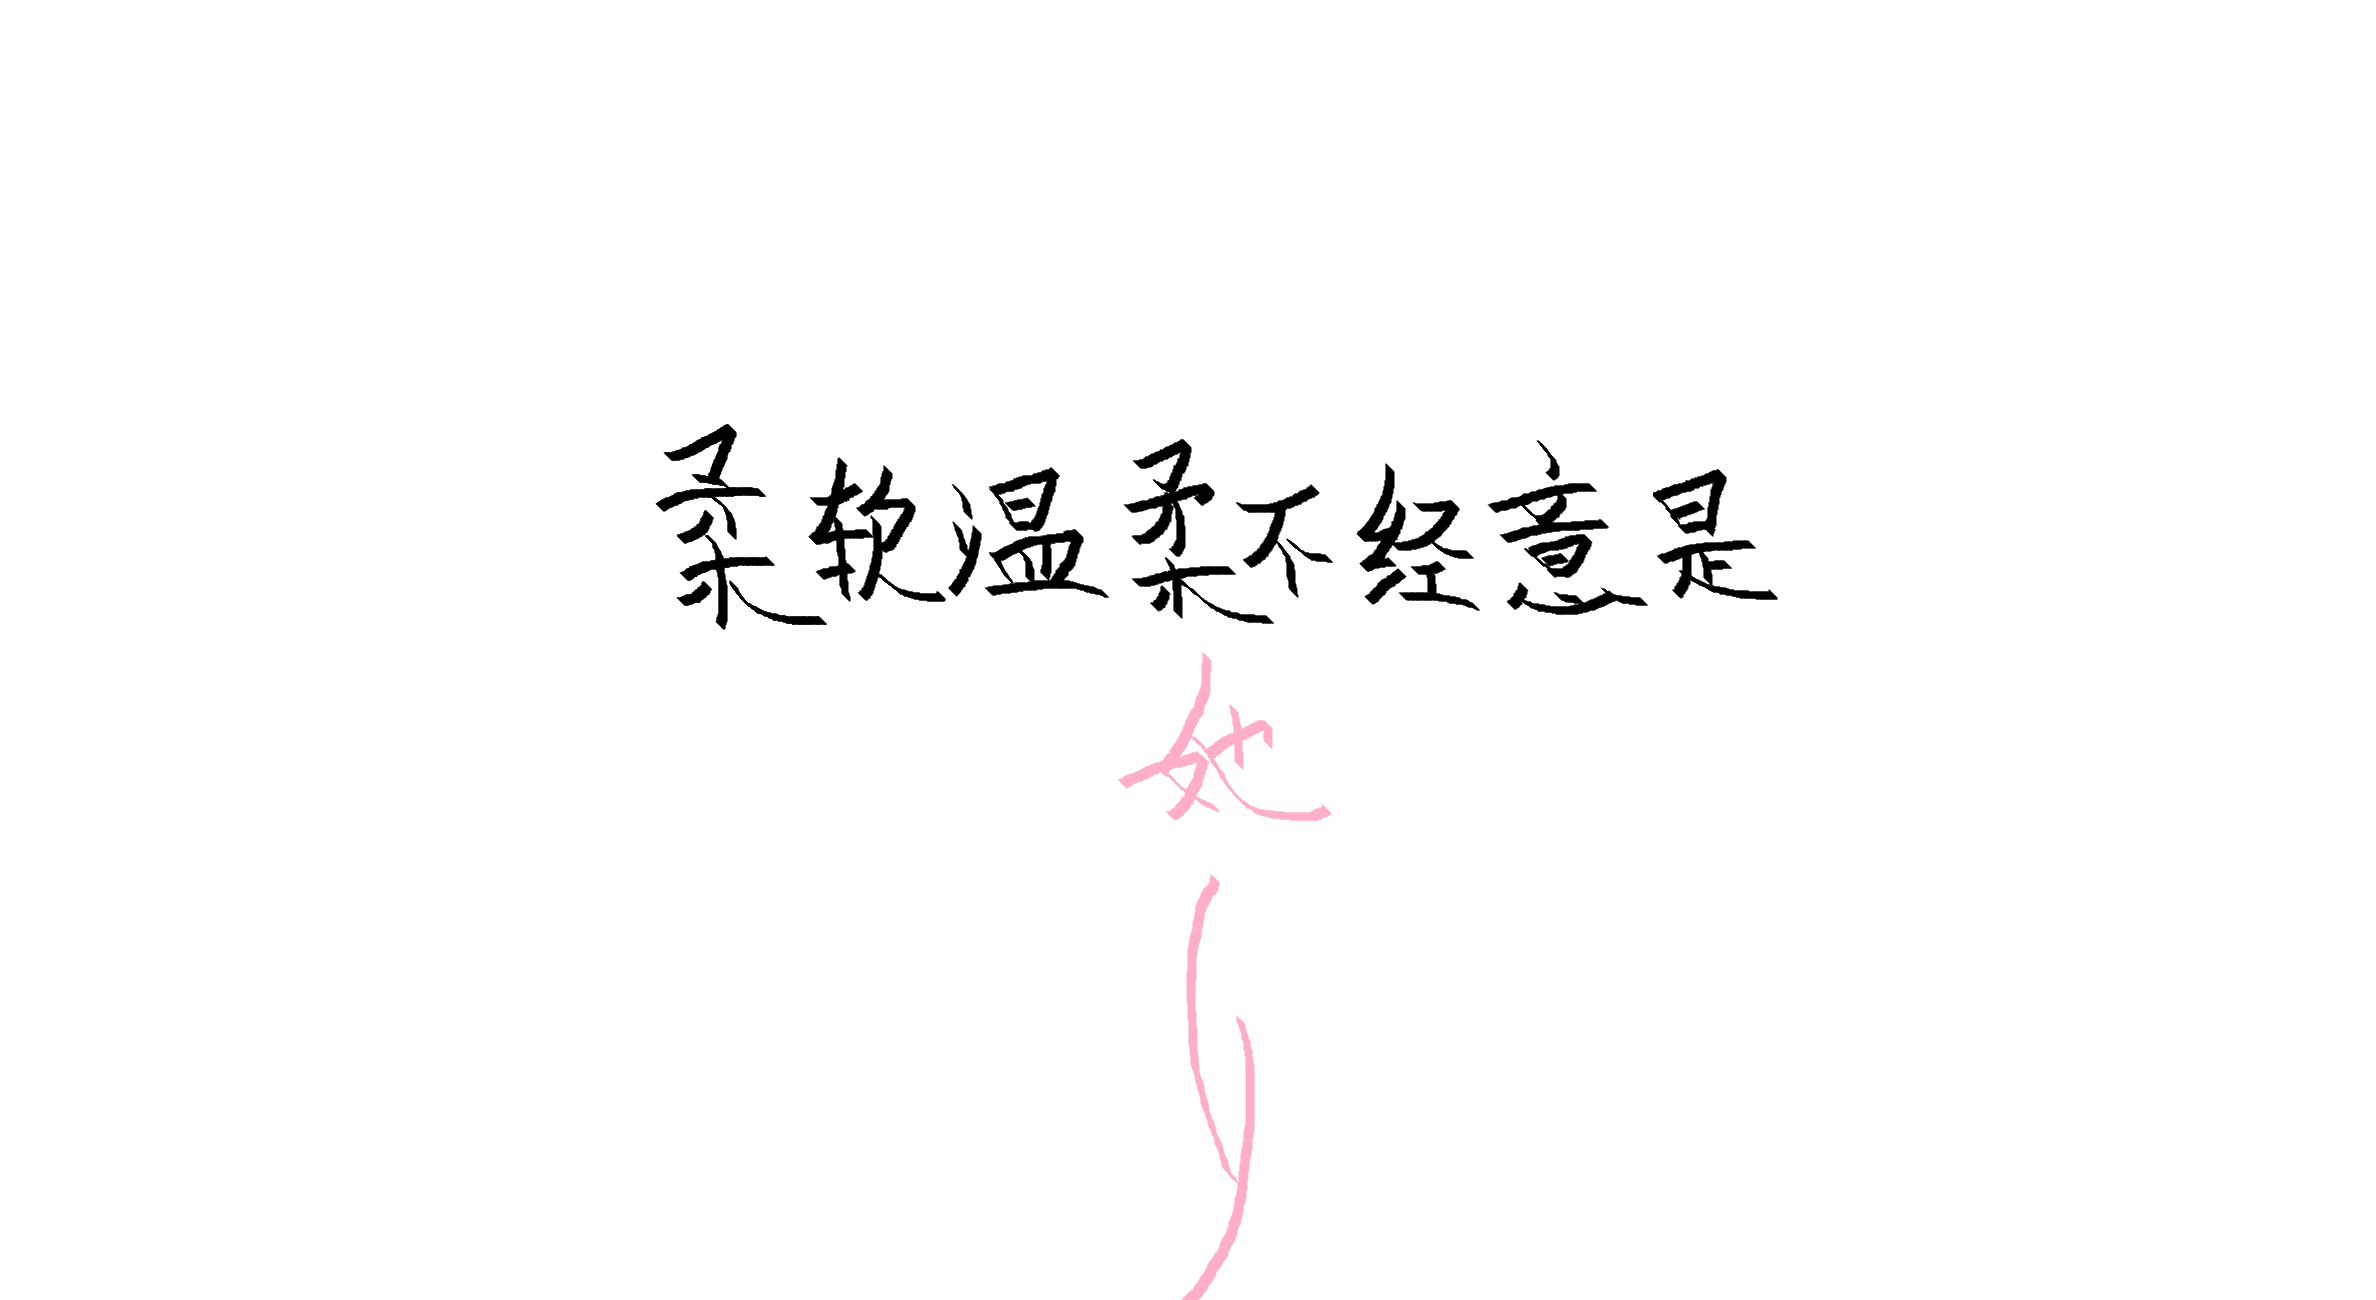 柔软温柔不经意是
她